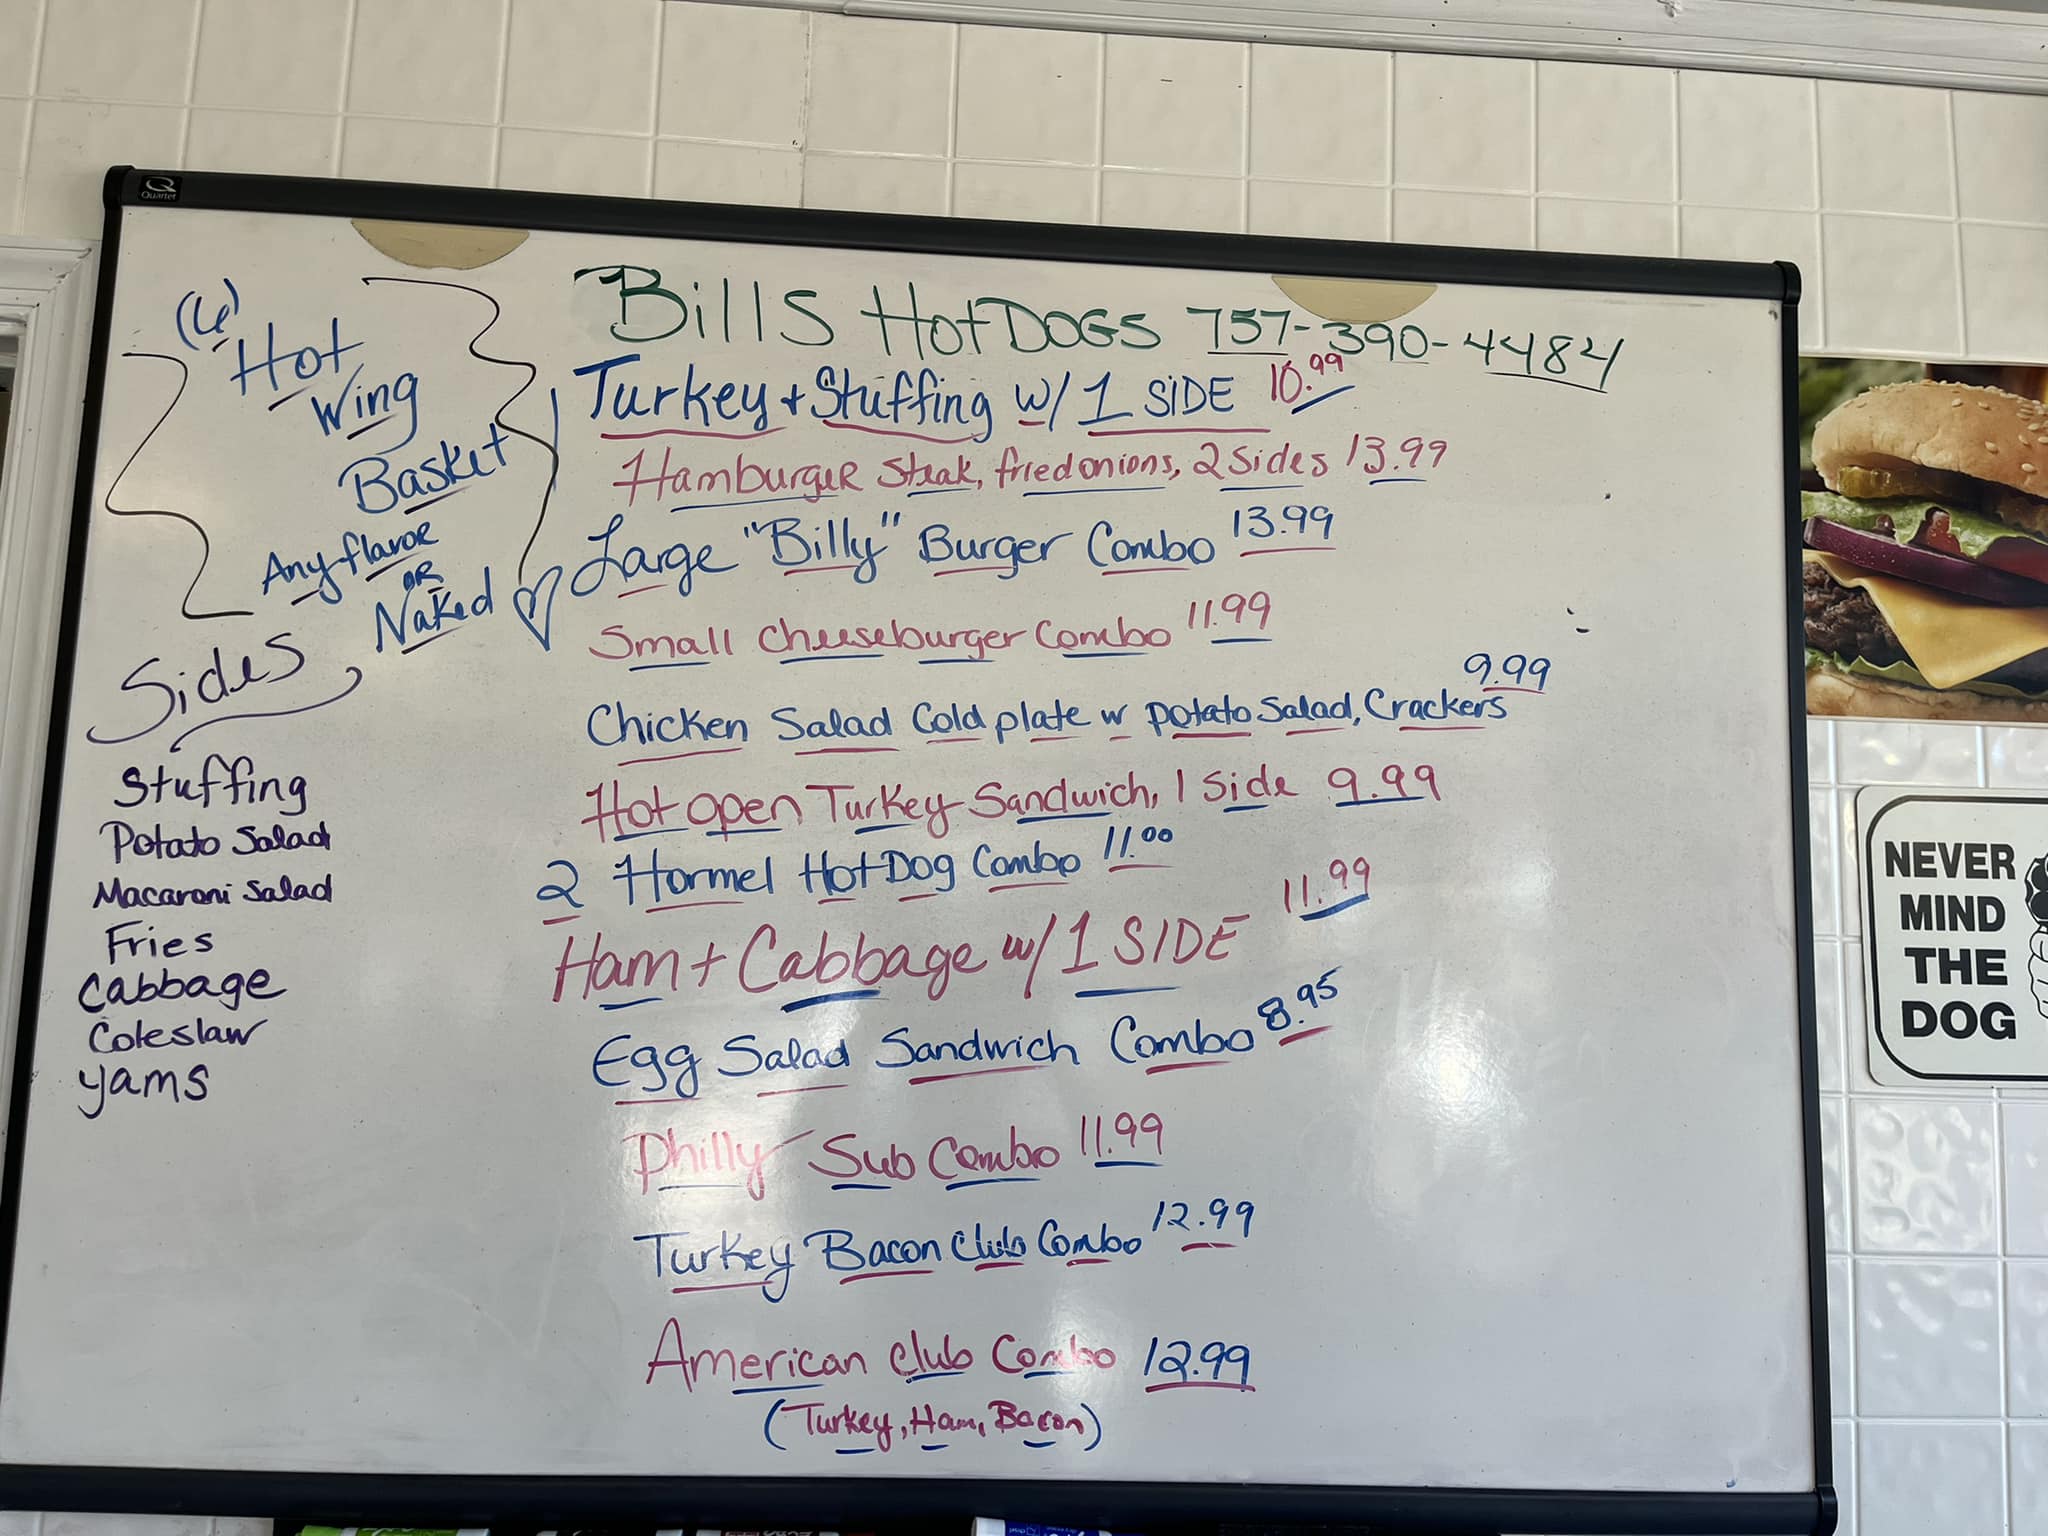 Quartet
(6)
Hot
Wing
Basket
Any flavor
OR
Naked
Sides
Stuffing
Potato Salad
Macaroni Salad
Fries
Cabbage
Coleslaw
Yams
Bills Hot DOGS 757-390-4484
Turkey + Stuffing w/ 1 SIDE 10.99
Hamburger Steak, fried onions, 2 Sides 13.99
Large "Billy" Burger Combo 13.99
Small Cheeseburger Combo 11.99
Chicken Salad Cold plate w potato Salad, Crackers 9.99
Hot open Turkey Sandwich, 1 Side 9.99
2 Hormel Hot Dog Combo 11.00
Ham + Cabbage w/ 1 SIDE 11.99
Egg Salad Sandwich Combo 8.95
Philly Sub Combo 11.99
Turkey Bacon Club Combo 12.99
American Club Combo 12.99
(Turkey, Ham, Bacon)
NEVER
MIND
THE
DOG